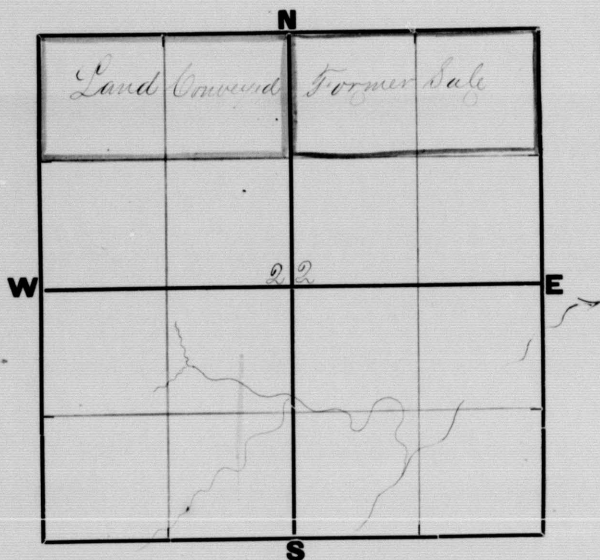 N
Land Conveyed Former Sale
22
W E
S